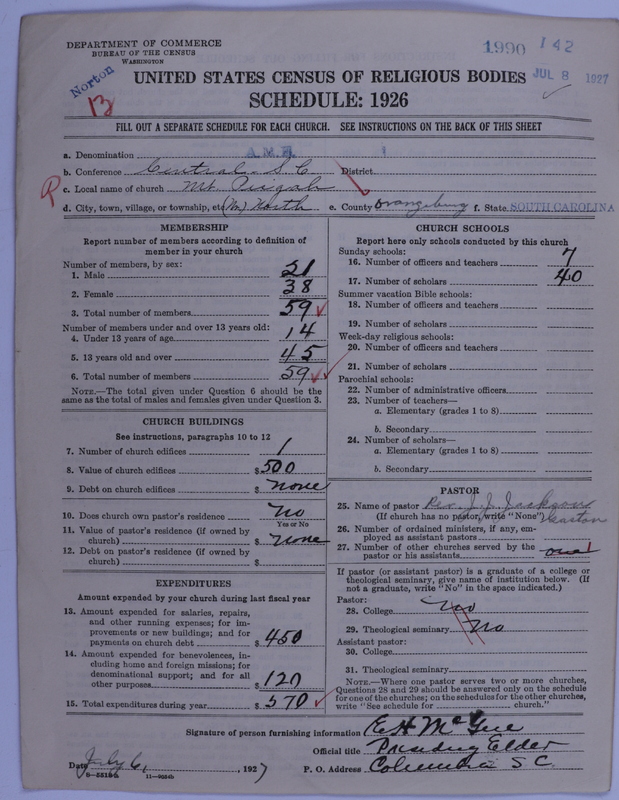 DEPARTMENT OF COMMERCE
BUREAU OF THE CENSUS
WASHINGTON
1990 142
Norton
13
JUL 8 1927
UNITED STATES CENSUS OF RELIGIOUS BODIES
SCHEDULE: 1926
FILL OUT A SEPARATE SCHEDULE FOR EACH CHURCH. SEE INSTRUCTIONS ON THE BACK OF THIS SHEET
a. Denomination A.M.E.
b. Conference Central S.C. District
c. Local name of church Mt. Pisgah
d. City, town, village, or township, etc. North e. County Orangeburg f. State SOUTH CAROLINA
MEMBERSHIP
Report number of members according to definition of member in your church
Number of members, by sex:
1. Male 21
2. Female 38
3. Total number of members 59
Number of members under and over 13 years old:
4. Under 13 years of age 14
5. 13 years old and over 45
6. Total number of members 59
NOTE.—The total given under Question 6 should be the same as the total of males and females given under Question 3.
CHURCH BUILDINGS
See instructions, paragraphs 10 to 12
7. Number of church edifices 1
8. Value of church edifices $500
9. Debt on church edifices $ none
10. Does church own pastor's residence no
Yes or No
11. Value of pastor's residence (if owned by church) $ none
12. Debt on pastor's residence (if owned by church) $
EXPENDITURES
Amount expended by your church during last fiscal year
13. Amount expended for salaries, repairs, and other running expenses; for improvements or new buildings; and for payments on church debt $ 450
14. Amount expended for benevolences, including home and foreign missions; for denominational support; and for all other purposes $ 120
15. Total expenditures during year $ 570
CHURCH SCHOOLS
Report here only schools conducted by this church
Sunday schools:
16. Number of officers and teachers 7
17. Number of scholars 40
Summer vacation Bible schools:
18. Number of officers and teachers
19. Number of scholars
Week-day religious schools:
20. Number of officers and teachers
21. Number of scholars
Parochial schools:
22. Number of administrative officers
23. Number of teachers—
a. Elementary (grades 1 to 8)
b. Secondary
24. Number of scholars—
a. Elementary (grades 1 to 8)
b. Secondary
PASTOR
25. Name of pastor Rev. J. J. Jackson
(If church has no pastor, write "None") Gaston
26. Number of ordained ministers, if any, employed as assistant pastors
27. Number of other churches served by the pastor or his assistants one 1
If pastor (or assistant pastor) is a graduate of a college or theological seminary, give name of institution below. (If not a graduate, write "No" in the space indicated.)
Pastor:
28. College no
29. Theological seminary No
Assistant pastor:
30. College
31. Theological seminary
NOTE.—Where one pastor serves two or more churches, Questions 28 and 29 should be answered only on the schedule for one of the churches; on the schedules for the other churches, write "See schedule for church."
Signature of person furnishing information E H McGee
Official title Presiding Elder
Date July 6, 1927 P. O. Address Columbia S C.